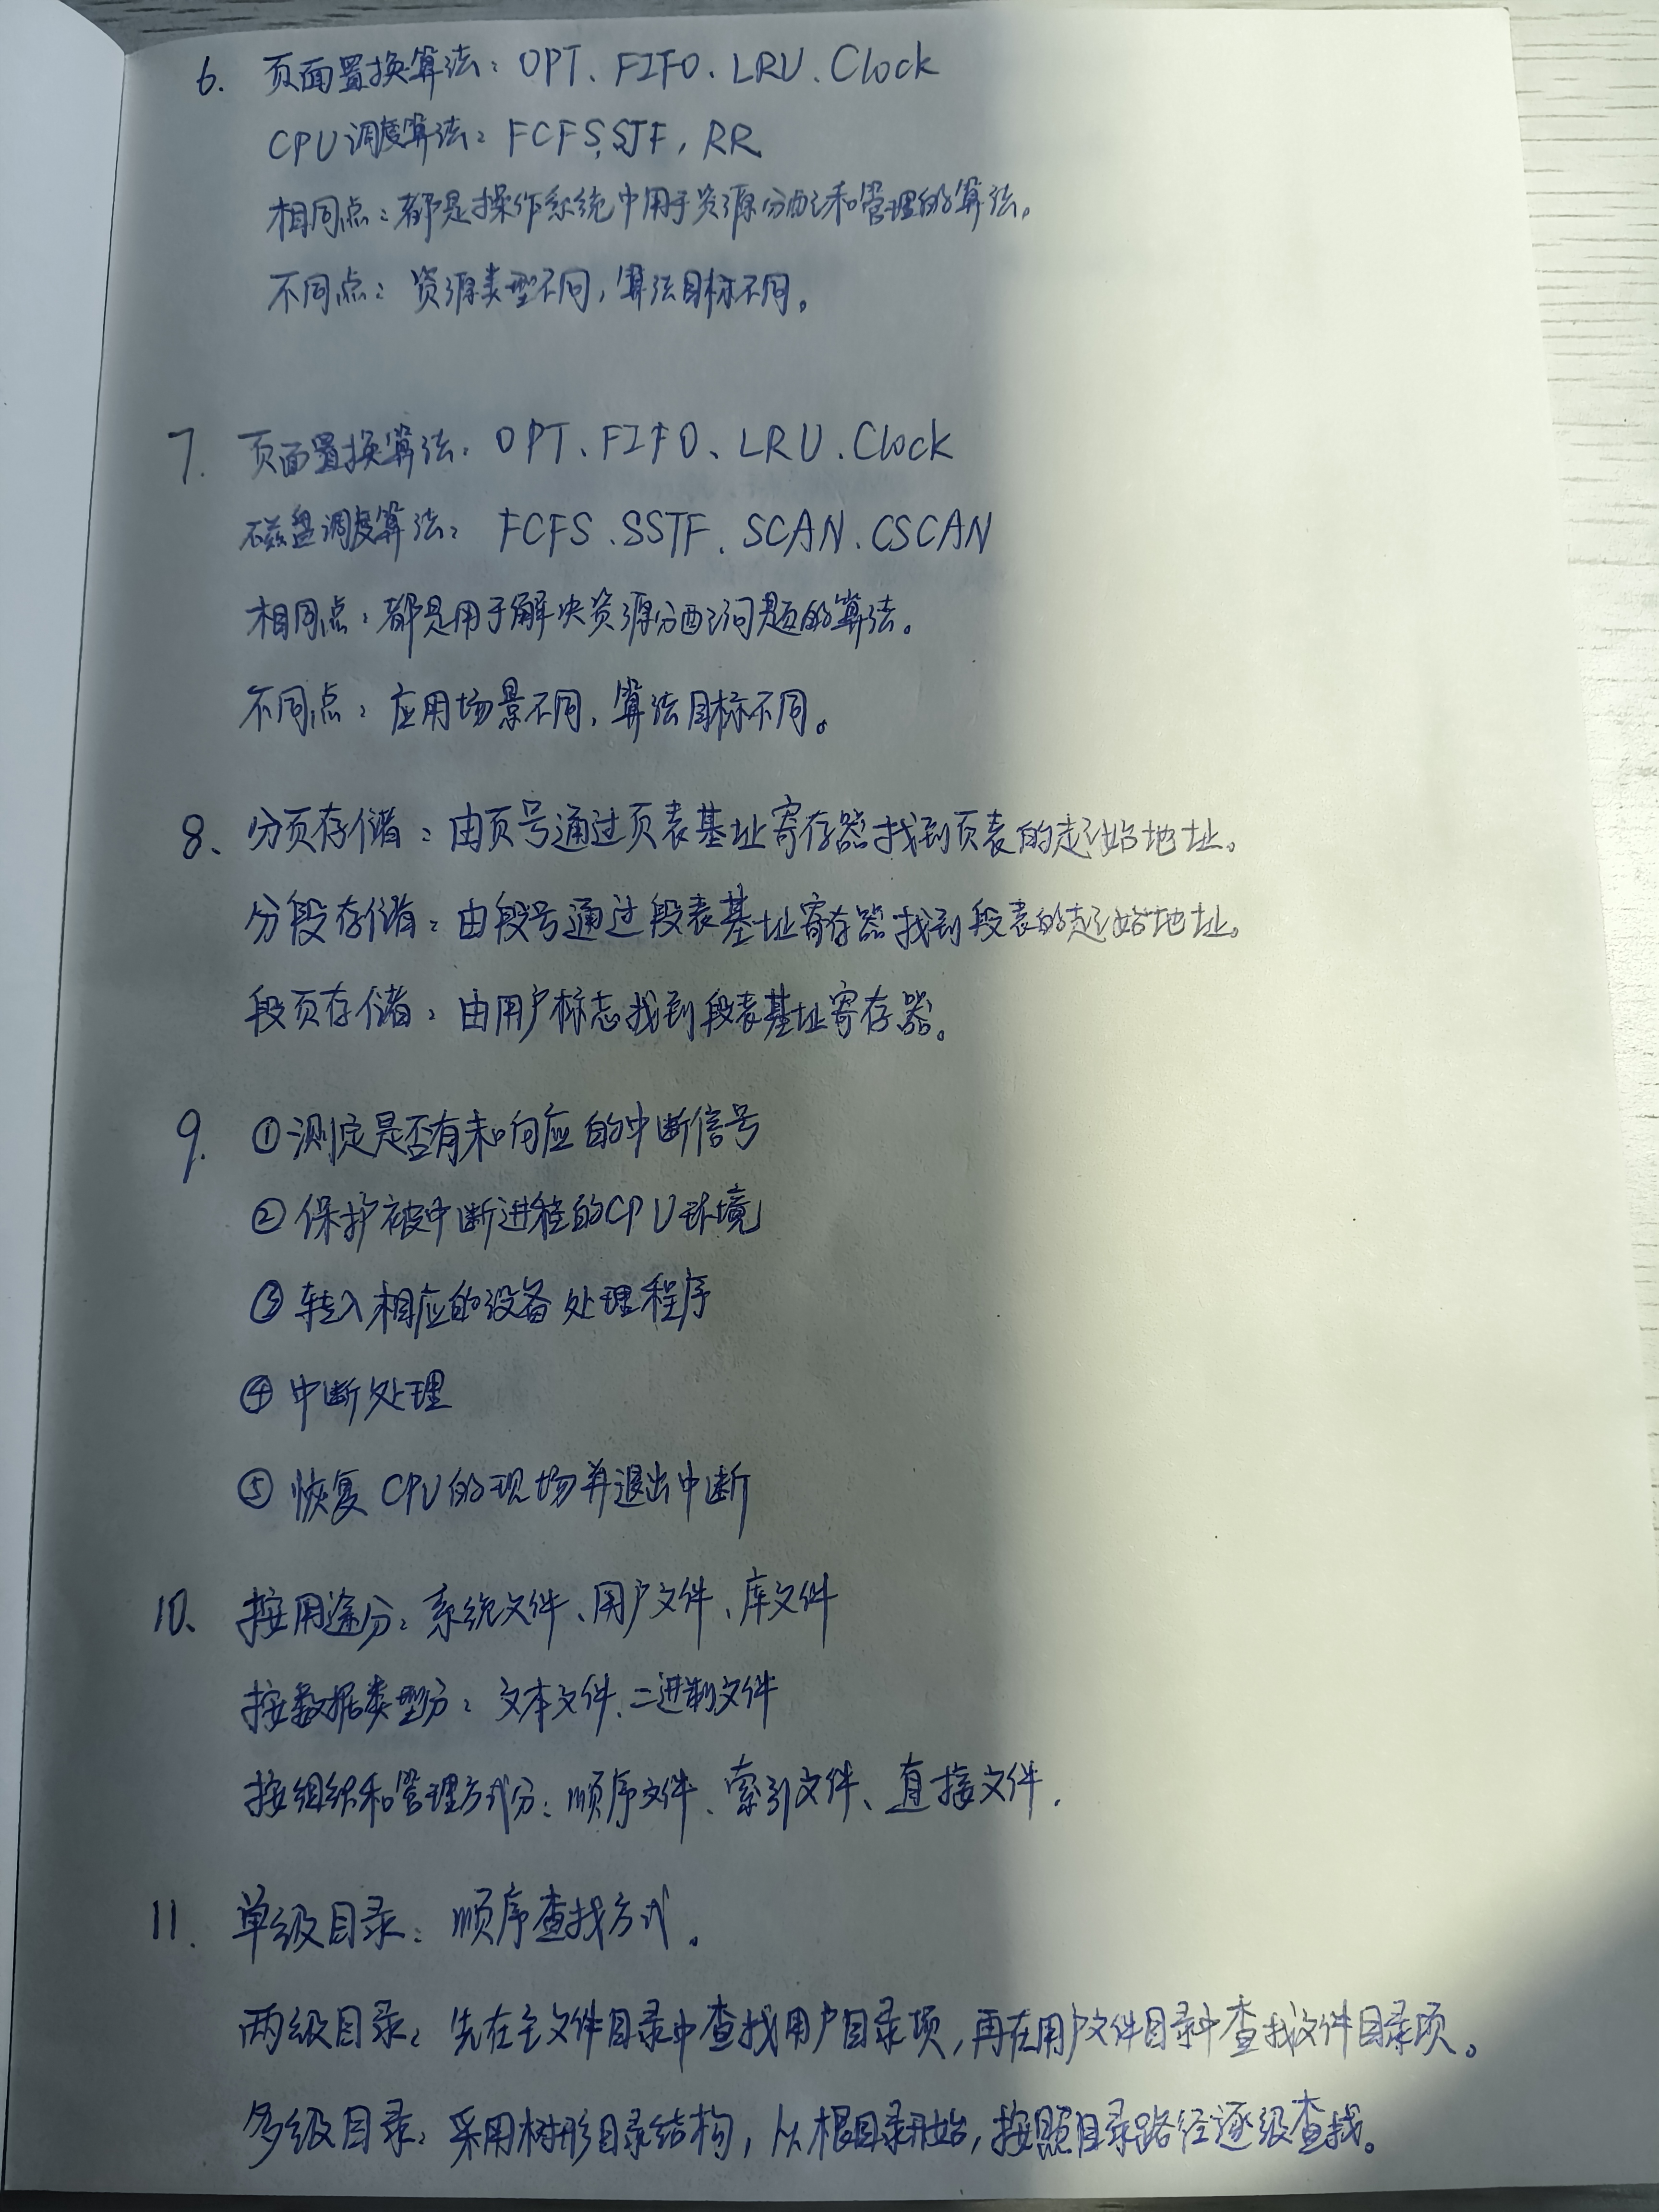 6. 页面置换算法：OPT、FIFO、LRU、Clock
CPU调度算法：FCFS、SJF，RR
相同点：都是操作系统中用于资源分配和管理的算法。
不同点：资源类型不同，算法目标不同。
7. 页面置换算法：OPT、FIFO、LRU、Clock
磁盘调度算法：FCFS、SSTF、SCAN、CSCAN
相同点：都是用于解决资源分配问题的算法。
不同点：应用场景不同，算法目标不同。
8、分页存储：由页号通过页表基址寄存器找到页表的起始地址。
分段存储：由段号通过段表基址寄存器找到段表的起始地址。
段页存储：由用户标志找到段表基址寄存器。
9. ①测定是否有未响应的中断信号
②保护被中断进程的CPU环境
③转入相应的设备处理程序
④中断处理
⑤恢复CPU的现场并退出中断
10、按用途分：系统文件、用户文件、库文件
按数据类型分：文本文件、二进制文件
按组织和管理方式分：顺序文件、索引文件、直接文件．
11. 单级目录：顺序查找方式。
两级目录：先在主文件目录中查找用户目录项，再在用户文件目录中查找文件目录项。
多级目录：采用树形目录结构，从根目录开始，按照目录路径逐级查找。